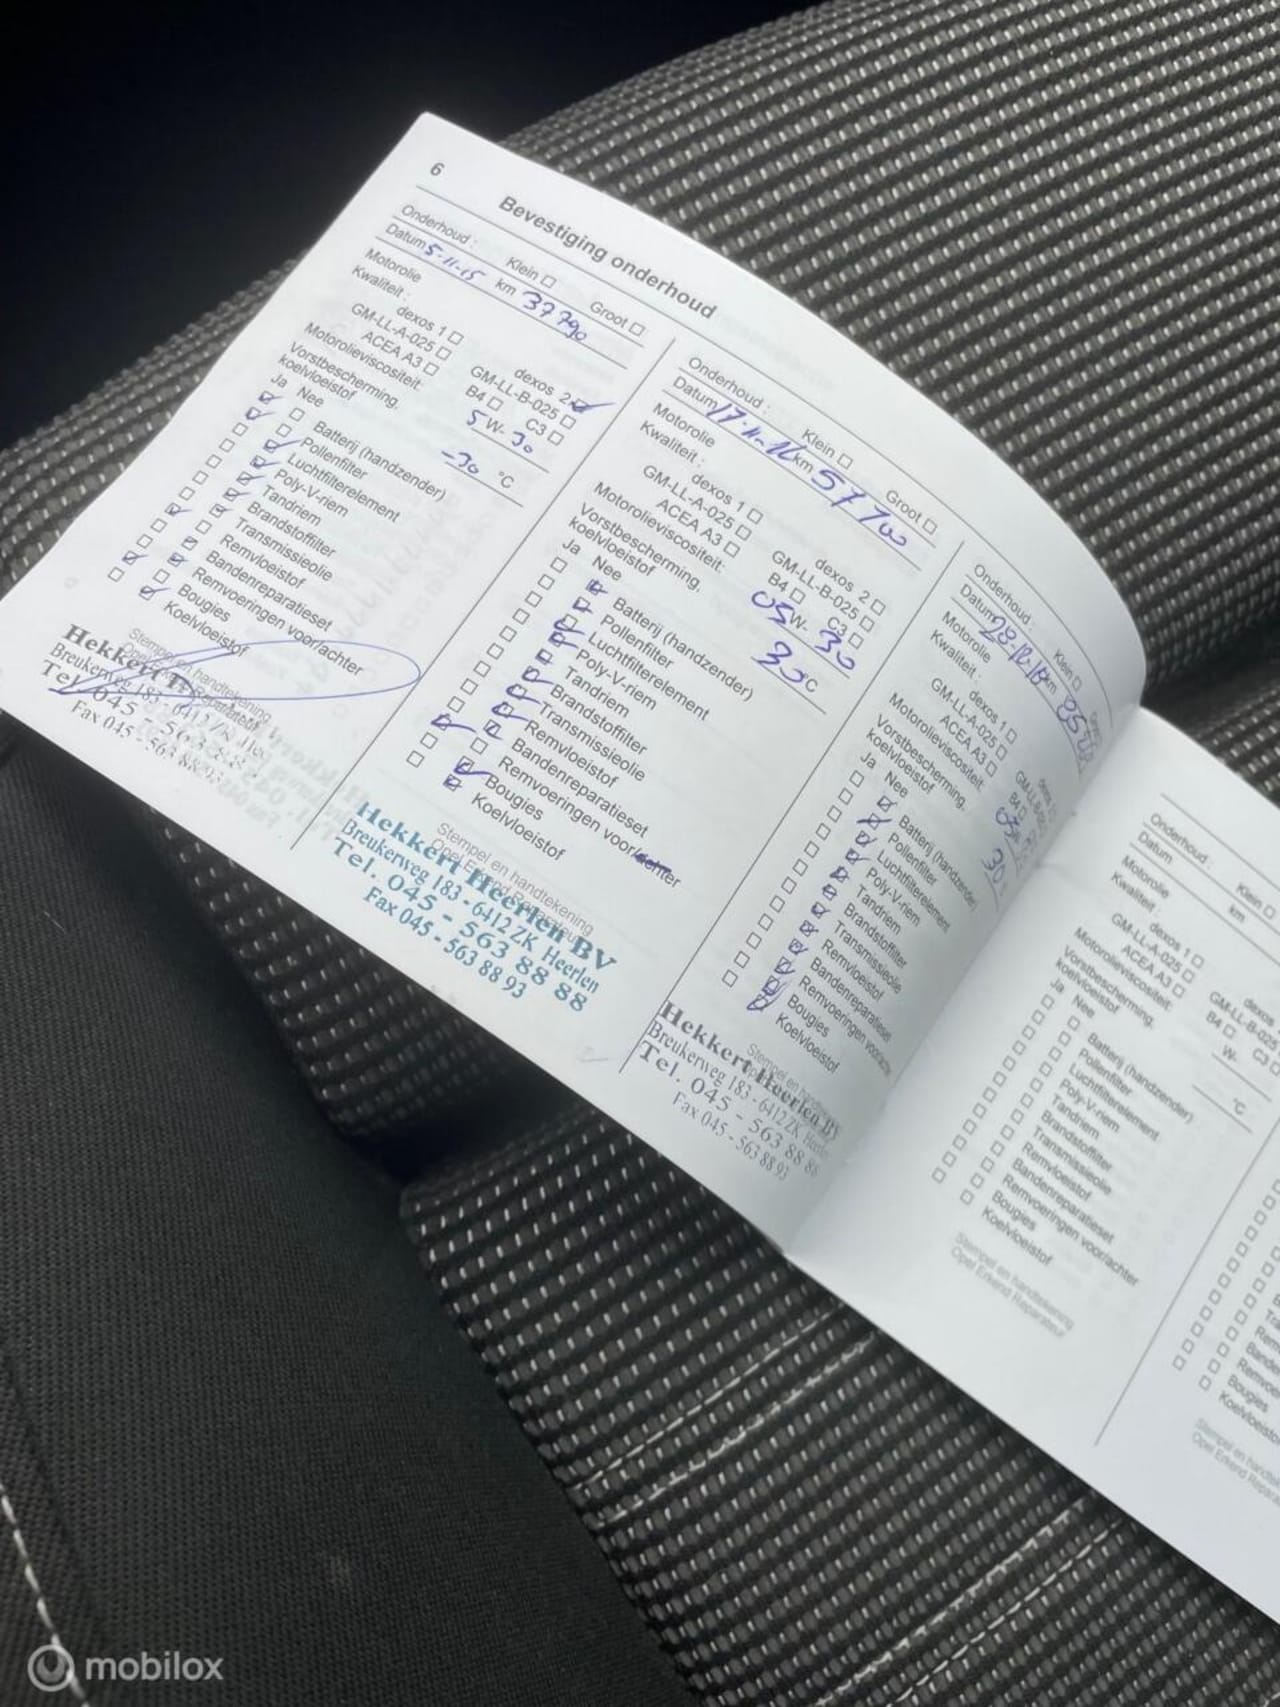 6
Bevestiging onderhoud
Onderhoud : Klein Groot
Datum 5-11-15 km 37790
Motorolie
Kwaliteit :
dexos 1 dexos 2
GM-LL-A-025 GM-LL-B-025
ACEA A3 B4 C3
Motorolieviscositeit: 5 W- 30
Vorstbescherming,
koelvloeistof -30 °C
Ja Nee
Batterij (handzender)
Pollenfilter
Luchtfilterelement
Poly-V-riem
Tandriem
Brandstoffilter
Transmissieolie
Remvloeistof
Bandenreparatieset
Remvoeringen voor/achter
Bougies
Koelvloeistof
Stempel en handtekening
Hekkert
Breukerweg 183 -
Tel. 045 - 563 88 88
Fax 045 - 563 88 93
Onderhoud : Klein Groot
Datum 17-11-16 km 57700
Motorolie
Kwaliteit :
dexos 1 dexos 2
GM-LL-A-025 GM-LL-B-025
ACEA A3 B4 C3
Motorolieviscositeit: 05 W- 30
Vorstbescherming,
koelvloeistof 30 °C
Ja Nee
Batterij (handzender)
Pollenfilter
Luchtfilterelement
Poly-V-riem
Tandriem
Brandstoffilter
Transmissieolie
Remvloeistof
Bandenreparatieset
Remvoeringen voor/achter
Bougies
Koelvloeistof
Stempel en handtekening
Opel Erkend Reparateur
Hekkert Heerlen BV
Breukerweg 183 - 6412 ZK Heerlen
Tel. 045 - 563 88 88
Fax 045 - 563 88 93
Onderhoud : Klein
Datum km
Motorolie
Kwaliteit :
dexos 1
GM-LL-A-025
ACEA A3 B4
Motorolieviscositeit:
Vorstbescherming,
koelvloeistof 30
Ja Nee
Batterij (handzender)
Pollenfilter
Luchtfilterelement
Poly-V-riem
Tandriem
Brandstoffilter
Transmissieolie
Remvloeistof
Bandenreparatieset
Remvoeringen voor/
Bougies
Koelvloeistof
Stempel en
Hekkert Heerlen BV
Breukerweg 183 - 6412 ZK Heerlen
Tel. 045 - 563 88 88
Fax 045 - 563 88 93
Onderhoud : Klein
Datum km
Motorolie
Kwaliteit :
dexos 1 dexos
GM-LL-A-025 GM-LL-B-025
ACEA A3 B4 C3
Motorolieviscositeit: W-
Vorstbescherming,
koelvloeistof °C
Ja Nee
Batterij (handzender)
Pollenfilter
Luchtfilterelement
Poly-V-riem
Tandriem
Brandstoffilter
Transmissieolie
Remvloeistof
Bandenreparatieset
Remvoeringen voor/achter
Bougies
Koelvloeistof
Stempel en handtekening
Opel Erkend Reparateur
Bougies
mobilox